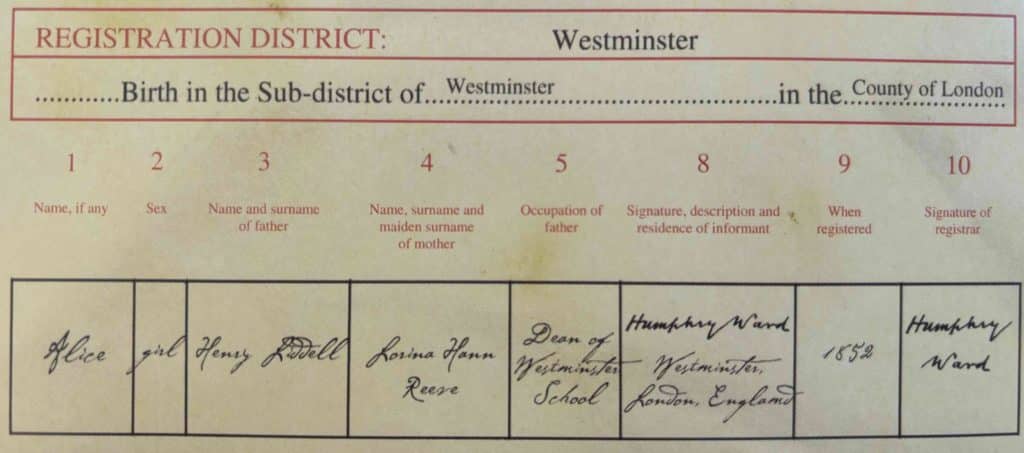 REGISTRATION DISTRICT: Westminster
............Birth in the Sub-district of....Westminster....in the County of London
1 2 3 4 5 8 9 10
Name, if any
Sex
Name and surname
of father
Name, surname and
maiden surname
of mother
Occupation of
father
Signature, description and
residence of informant
When
registered
Signature of
registrar
Alice
girl
Henry Liddell
Lorina Hann
Reeve
Dean of
Westminster
School
Humphry Ward
Westminster,
London, England
1852
Humphry
Ward